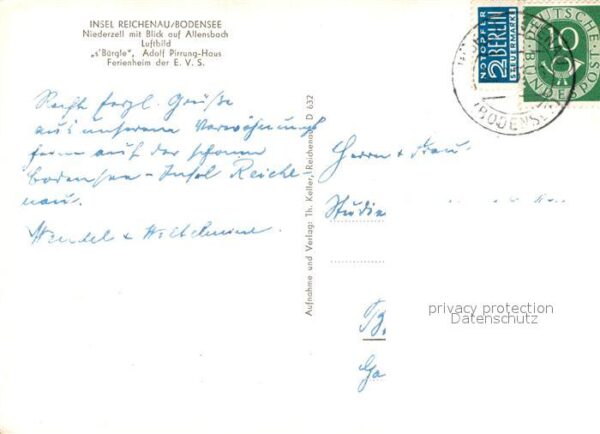 INSEL REICHENAU/BODENSEE
Niederzell mit Blick auf Allensbach
Luftbild
„s'Bürgle", Adolf Pirrung-Haus
Ferienheim der E. V. S.
Recht herzl. Grüße
aus unserem Verwöhnungs
ferien auf der schönen
Bodensee-Insel Reiche-
nau.
Wendel + Wilhelmine.
Aufnahme und Verlag: Th. Keller, Reichenau D 632
NOTOPFER
2 BERLIN
STEUERMARKE
10
DEUTSCHE
BUNDESPOST
(BODENS
Herrn + Frau
Studie
B.
Ga
privacy protection
Datenschutz